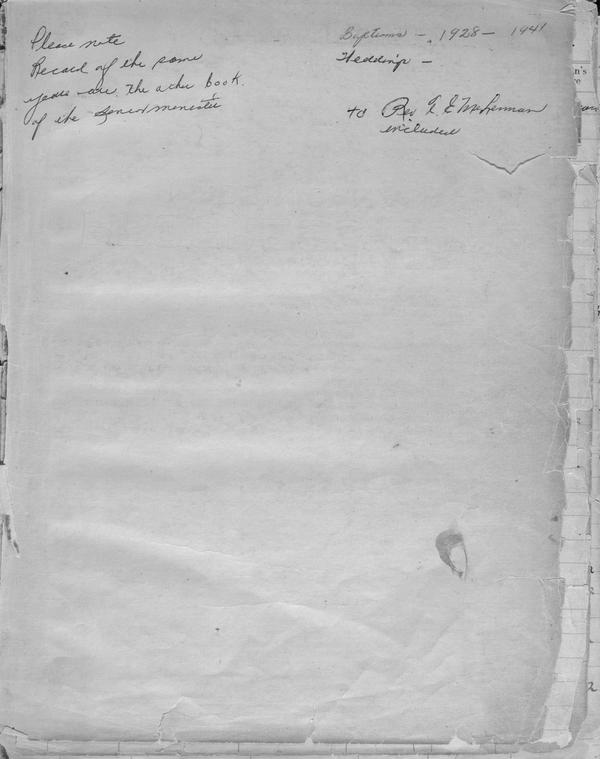 Please note
Record of the same
years are the other book.
of the Senior minister
Baptisms - 1928 - 1941
Weddings -
to Rev
included
n's